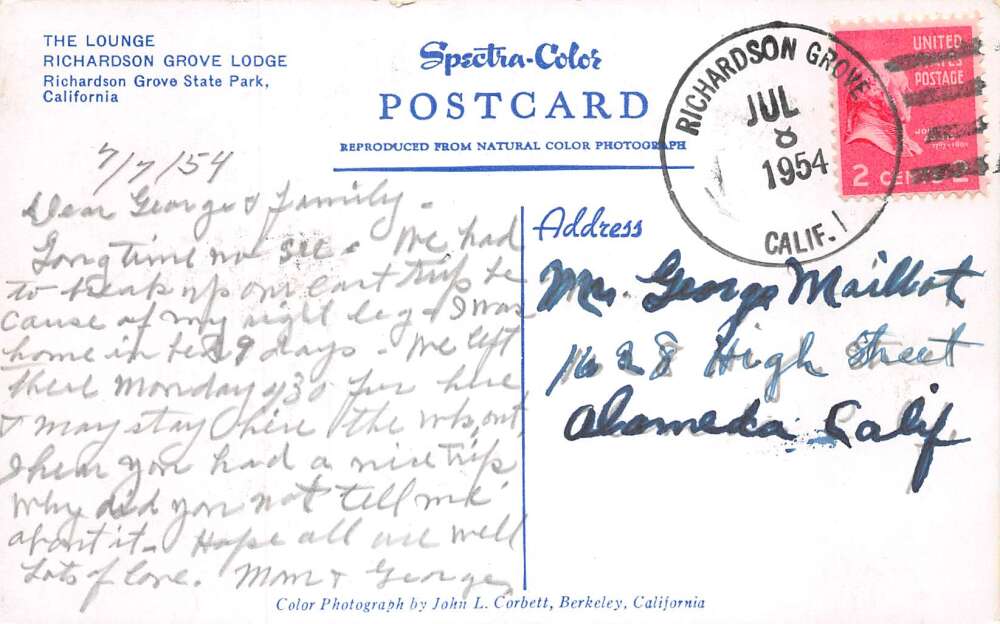 THE LOUNGE
RICHARDSON GROVE LODGE
Richardson Grove State Park,
California
Spectra-Color
POSTCARD
REPRODUCED FROM NATURAL COLOR PHOTOGRAPH
RICHARDSON GROVE
JUL
8
1954
CALIF.
UNITED
STATES
POSTAGE
2 CENTS 2
7/7/54
Dear George & Family -
Long time no see - We had
to break up our last trip be
cause of my right leg - I was
home in bed 9 days - We left
there Monday 430 for here
& may stay here the mo. out,
I hear you had a nice trip
why did you not tell me
about it - Hope all are well
Lots of love. Mom & George
Address
Mr. George Maillot
1628 High Street
Alameda Calif
Color Photograph by John L. Corbett, Berkeley, California